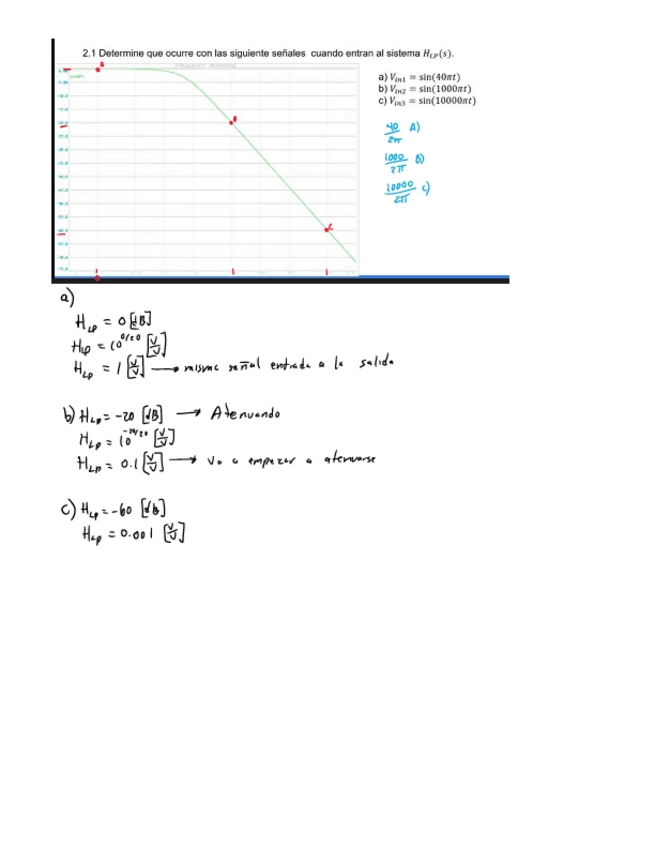 2.1 Determine que ocurre con las siguiente señales cuando entran al sistema H_LP(s).
a) V_in1 = sin(40πt)
b) V_in2 = sin(1000πt)
c) V_in3 = sin(10000πt)
40/2π A)
1000/2π B)
10000/2π c)
A
B
C
a)
H_LP = 0 [dB]
H_LP = 10^0/20 [V/V]
H_LP = 1 [V/V] → misma señal entrada a la salida
b) H_LP = -20 [dB] → Atenuando
H_LP = 10^-20/20 [V/V]
H_LP = 0.1 [V/V] → va a empezar a atenuarse
c) H_LP = -60 [db]
H_LP = 0.001 [V/V]